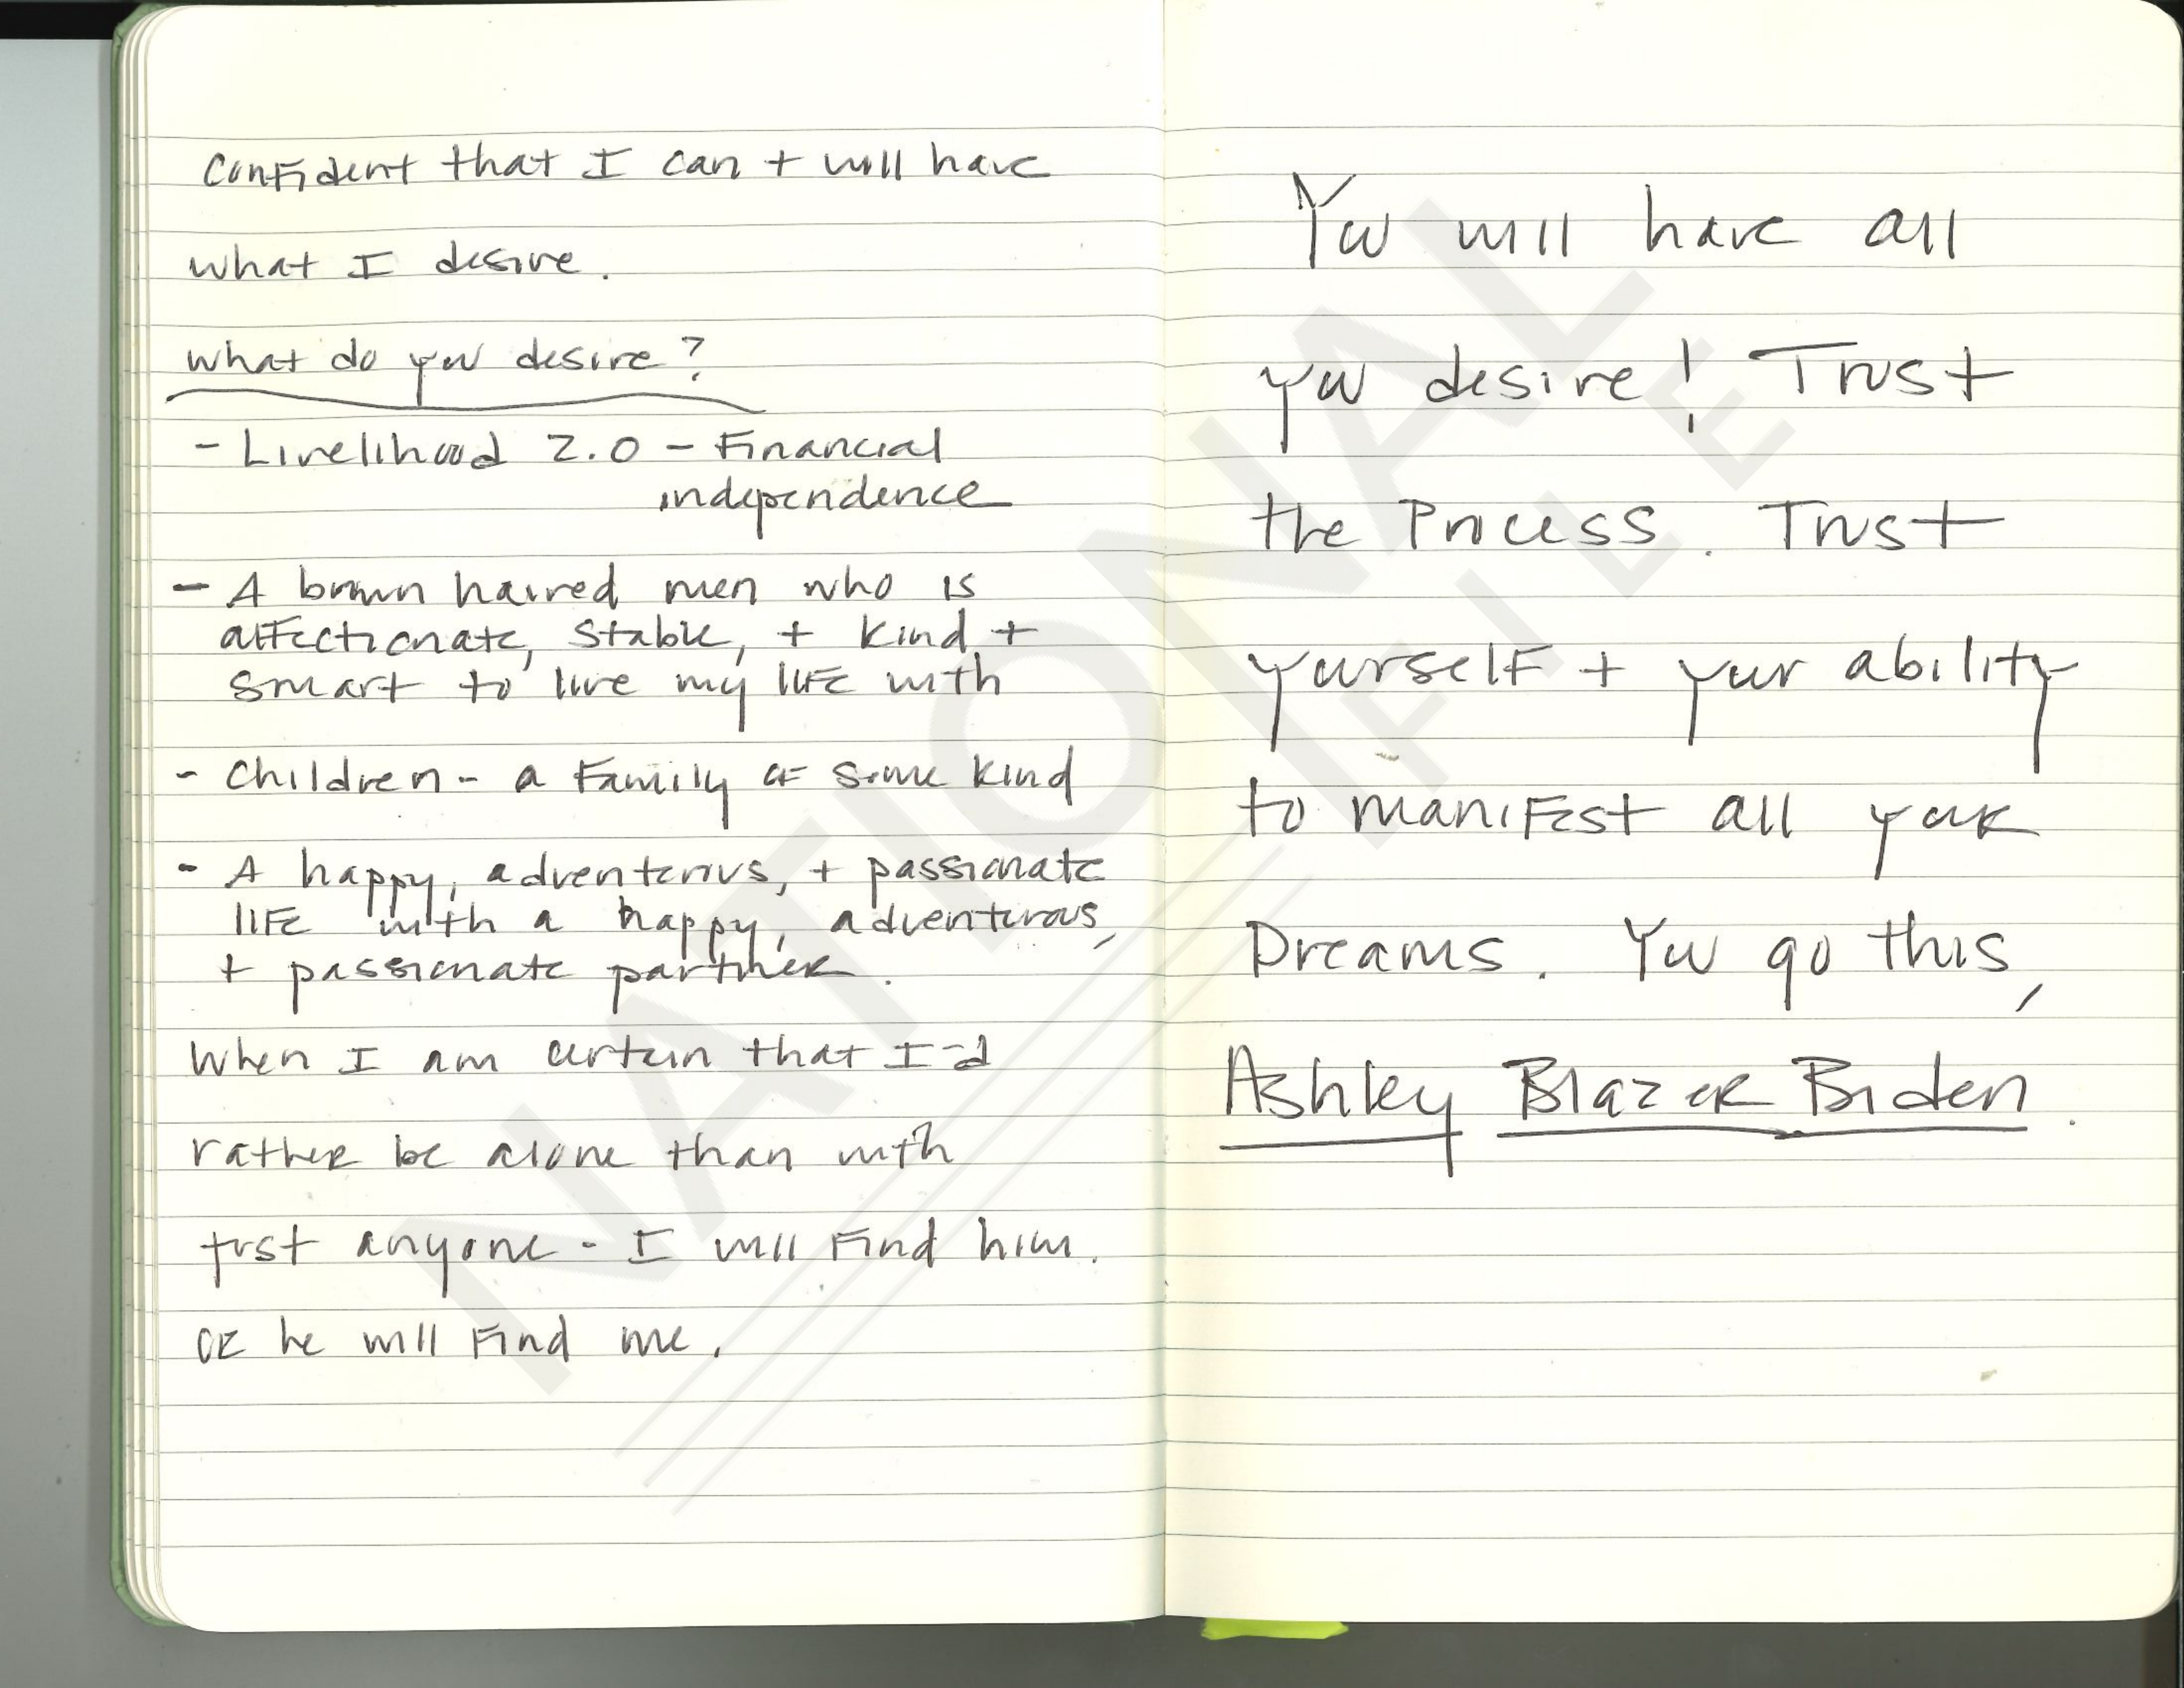 confident that I can + will have
what I desire.
what do you desire?
- Livelihood 2.0 - Financial
independence
- A brown haired men who is
affectionate, stable, + kind +
smart to live my life with
- Children - a family of some kind
- A happy, adventerous, + passionate
life with a happy, adventurous,
+ passionate partner.
When I am certain that I-d
rather be alone than with
just anyone - I will find him.
or he will find me.
You will have all
you desire! Trust
the Process. Trust
yourself + your ability
to manifest all your
Dreams. You go this,
Ashley Blazer Biden.
NATIONAL
FILE